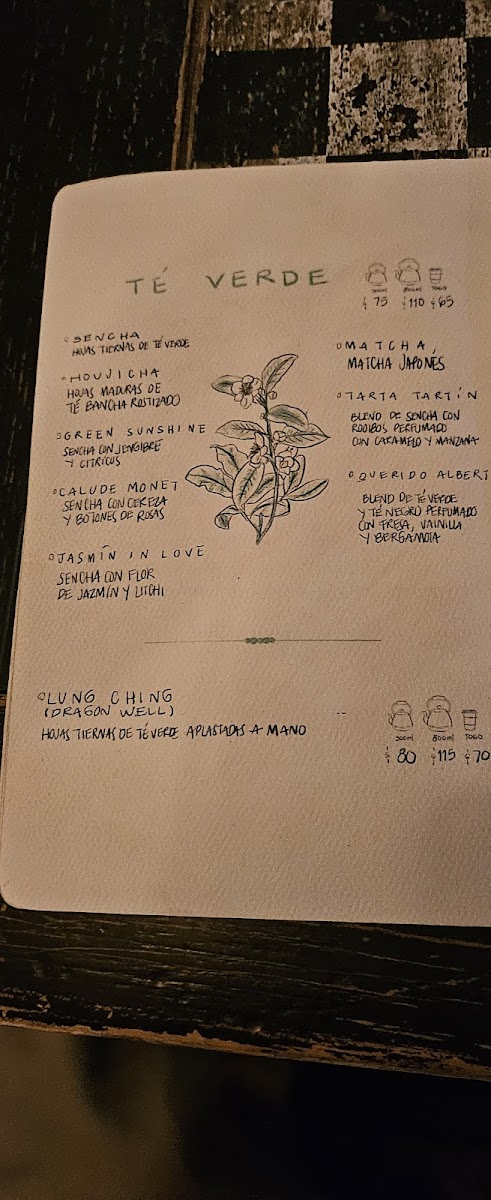 TÉ VERDE
500ml 800ml TOGO
$75 $110 $65
SENCHA
HOJAS TIERNAS DE TÉ VERDE
HOUJICHA
HOJAS MADURAS DE
TÉ BANCHA ROSTIZADO
GREEN SUNSHINE
SENCHA CON JENGIBRE
Y CITRICOS
CALUDE MONET
SENCHA CON CEREZA
Y BOTONES DE ROSAS
JASMÍN IN LOVE
SENCHA CON FLOR
DE JAZMÍN Y LITCHI
MATCHA
MATCHA JAPONÉS
TARTA TARTÍN
BLEND DE SENCHA CON
ROOIBOS PERFUMADO
CON CARAMELO Y MANZANA
QUERIDO ALBERT
BLEND DE TÉ VERDE
Y TÉ NEGRO PERFUMADO
CON FRESA, VAINILLA
Y BERGAMOTA
LUNG CHING
(DRAGON WELL)
HOJAS TIERNAS DE TÉ VERDE APLASTADAS A MANO
500ml 800ml TOGO
$80 $115 $70